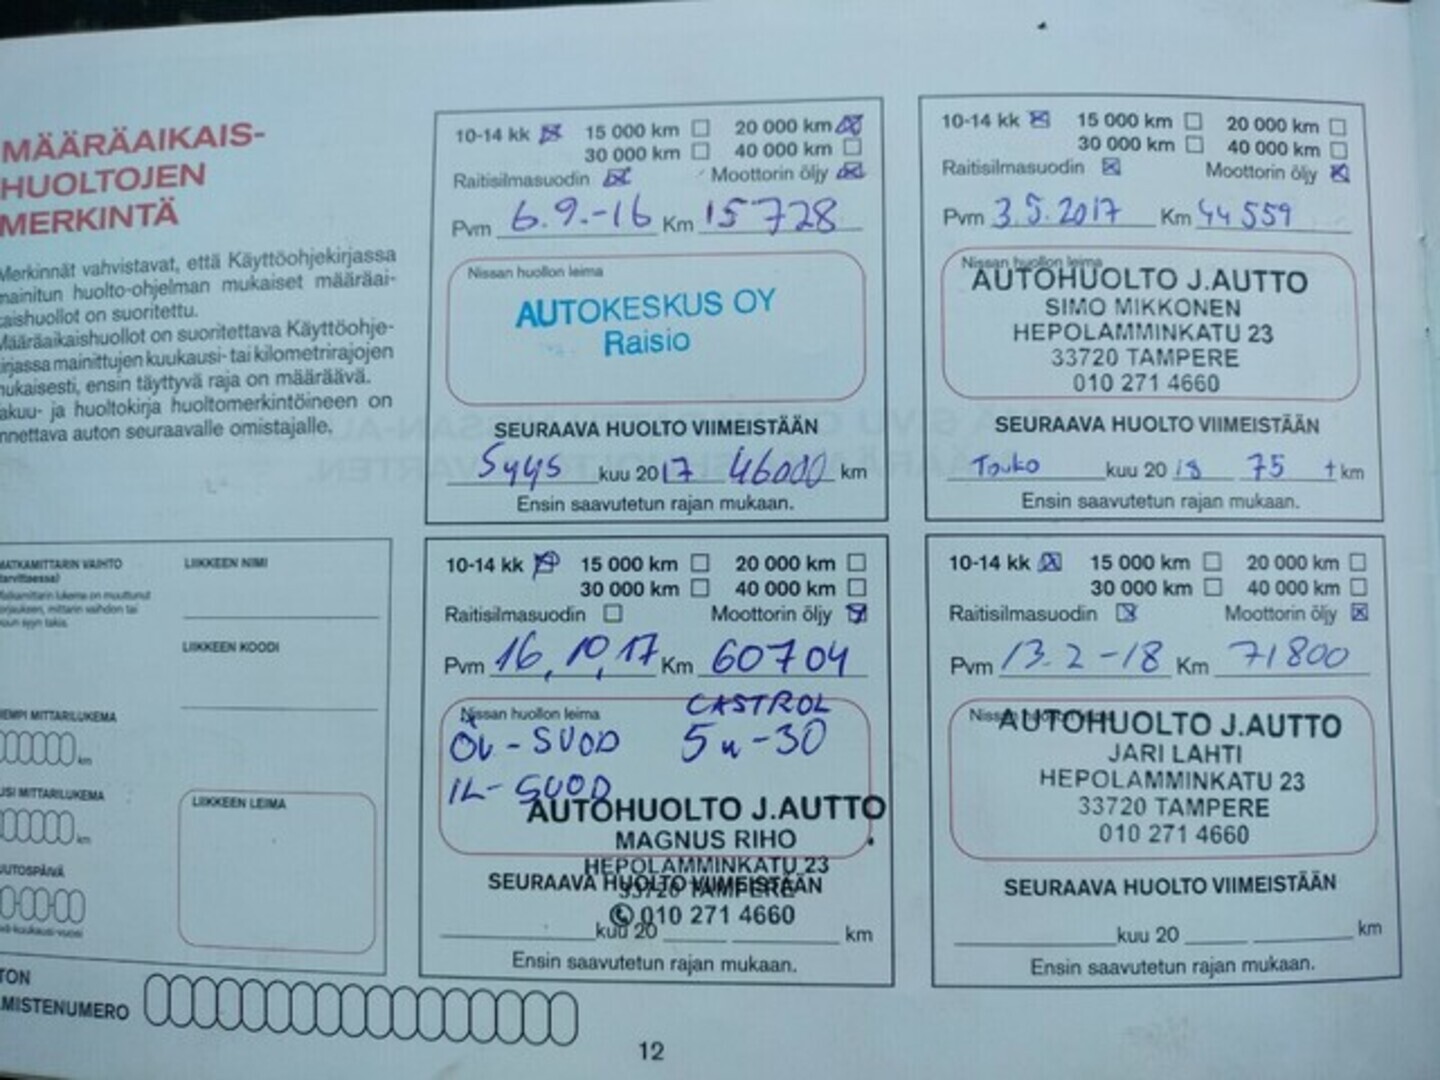 MÄÄRÄAIKAIS-
HUOLTOJEN
MERKINTÄ
Merkinnät vahvistavat, että Käyttöohjekirjassa
mainitun huolto-ohjelman mukaiset määräai-
kaishuollot on suoritettu.
Määräaikaishuollot on suoritettava Käyttöohje-
kirjassa mainittujen kuukausi- tai kilometrirajojen
mukaisesti, ensin täyttyvä raja on määräävä.
akuu- ja huoltokirja huoltomerkintöineen on
nnettava auton seuraavalle omistajalle.
10-14 kk 15 000 km 20 000 km
30 000 km 40 000 km
Raitisilmasuodin Moottorin öljy
Pvm 6.9.-16 Km 15728
Nissan huollon leima
AUTOKESKUS OY
Raisio
SEURAAVA HUOLTO VIIMEISTÄÄN
Syys kuu 2017 46000 km
Ensin saavutetun rajan mukaan.
10-14 kk 15 000 km 20 000 km
30 000 km 40 000 km
Raitisilmasuodin Moottorin öljy
Pvm 3.5.2017 Km 44 559
Nissan huollon leima
AUTOHUOLTO J.AUTTO
SIMO MIKKONEN
HEPOLAMMINKATU 23
33720 TAMPERE
010 271 4660
SEURAAVA HUOLTO VIIMEISTÄÄN
Touko kuu 2018 75 t km
Ensin saavutetun rajan mukaan.
MATKAMITTARIN VAIHTO
(tarvittaessa)
LIIKKEEN NIMI
LIIKKEEN KOODI
EMPI MITTARILUKEMA
km
USI MITTARILUKEMA
km
UUTOSPÄIVÄ
LIIKKEEN LEIMA
10-14 kk 15 000 km 20 000 km
30 000 km 40 000 km
Raitisilmasuodin Moottorin öljy
Pvm 16,10,17 Km 60704
Nissan huollon leima
CASTROL
ÖL-SUOD 5w-30
IL-SUOD
AUTOHUOLTO J.AUTTO
MAGNUS RIHO
HEPOLAMMINKATU 23
33720 TAMPERE
SEURAAVA HUOLTO VIIMEISTÄÄN
010 271 4660
kuu 20 km
Ensin saavutetun rajan mukaan.
10-14 kk 15 000 km 20 000 km
30 000 km 40 000 km
Raitisilmasuodin Moottorin öljy
Pvm 13.2-18 Km 71800
AUTOHUOLTO J.AUTTO
JARI LAHTI
HEPOLAMMINKATU 23
33720 TAMPERE
010 271 4660
SEURAAVA HUOLTO VIIMEISTÄÄN
kuu 20 km
Ensin saavutetun rajan mukaan.
TON
MISTENUMERO
12